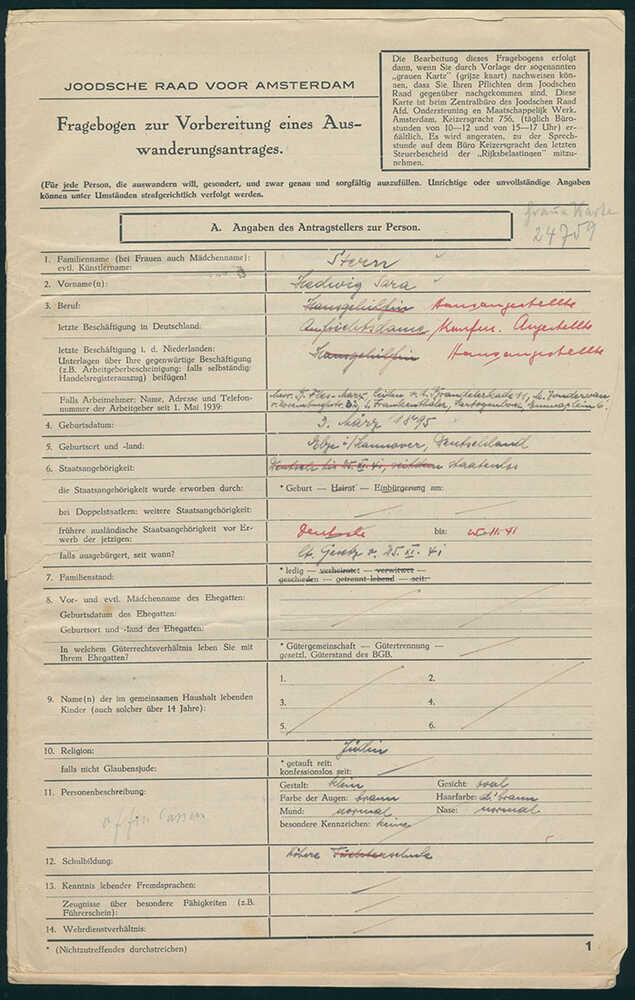 JOODSCHE RAAD VOOR AMSTERDAM
Fragebogen zur Vorbereitung eines Aus-
wanderungsantrages.
Die Bearbeitung dieses Fragebogens erfolgt
dann, wenn Sie durch Vorlage der sogenannten
„grauen Karte" (grijze kaart) nachweisen kön-
nen, dass Sie Ihren Pflichten dem Joodschen
Raad gegenüber nachgekommen sind. Diese
Karte ist beim Zentralbüro des Joodschen Raad
Afd. Ondersteuning en Maatschappelijk Werk,
Amsterdam, Keizersgracht 756, (täglich Büro-
stunden von 10—12 und von 15—17 Uhr) er-
hältlich. Es wird angeraten, zu der Sprech-
stunde auf dem Büro Keizersgracht den letzten
Steuerbescheid der „Rijksbelastingen" mitzu-
nehmen.
(Für jede Person, die auswandern will, gesondert, und zwar genau und sorgfältig auszufüllen. Unrichtige oder unvollständige Angaben
können unter Umständen strafgerichtlich verfolgt werden.
Graue Karte
24759
A. Angaben des Antragstellers zur Person.
1. Familienname (bei Frauen auch Mädchenname):
evtl. Künstlername:
Stern
2. Vorname(n):
Hedwig Sara
3. Beruf:
Hausgehilfin Hausangestellte
letzte Beschäftigung in Deutschland:
Aufsichtsdame, Kaufm. Angestellte
letzte Beschäftigung i. d. Niederlanden:
Unterlagen über Ihre gegenwärtige Beschäftigung
(z.B. Arbeitgeberbescheinigung: falls selbständig:
Handelsregisterauszug) beifügen!
Hausgehilfin Hausangestellte
Falls Arbeitnehmer: Name, Adresse und Telefon-
nummer der Arbeitgeber seit 1. Mai 1939:
4. Geburtsdatum:
3. März 1895
5. Geburtsort und -land:
Elze i/Hannover, Deutschland
6. Staatsangehörigkeit:
Deutsch bis 25. XI. 41, seitdem staatenlos
die Staatsangehörigkeit wurde erworben durch:
* Geburt — Heirat — Einbürgerung am:
bei Doppelstsatlern: weitere Staatsangehörigkeit:
frühere ausländische Staatsangehörigkeit vor Er-
werb der jetzigen:
Deutsche bis: 25.11.41
falls ausgebürgert, seit wann?
lt. Gesetz v. 25. XI. 41
7. Familienstand:
* ledig — verheiratet — verwitwet —
geschieden — getrennt lebend — seit:
8. Vor- und evtl. Mädchenname des Ehegatten:
Geburtsdatum des Ehegatten:
Geburtsort und -land des Ehegatten:
In welchem Güterrechtsverhältnis leben Sie mit
Ihrem Ehegatten?
* Gütergemeinschaft — Gütertrennung —
gesetzl. Güterstand des BGB.
9. Name(n) der im gemeinsamen Haushalt lebenden
Kinder (auch solcher über 14 Jahre):
1. 2.
3. 4.
5. 6.
10. Religion:
Jüdin
falls nicht Glaubensjude:
* getauft seit:
konfessionslos seit:
11. Personenbeschreibung:
Gestalt: klein Gesicht: oval
Farbe der Augen: braun Haarfarbe: braun
Mund: normal Nase: normal
besondere Kennzeichen: keine
12. Schulbildung:
Höhere Töchterschule
13. Kenntnis lebender Fremdsprachen:
Zeugnisse über besondere Fähigkeiten (z.B.
Führerschein):
14. Wehrdienstverhältnis:
* (Nichtzutreffendes durchstreichen)
1